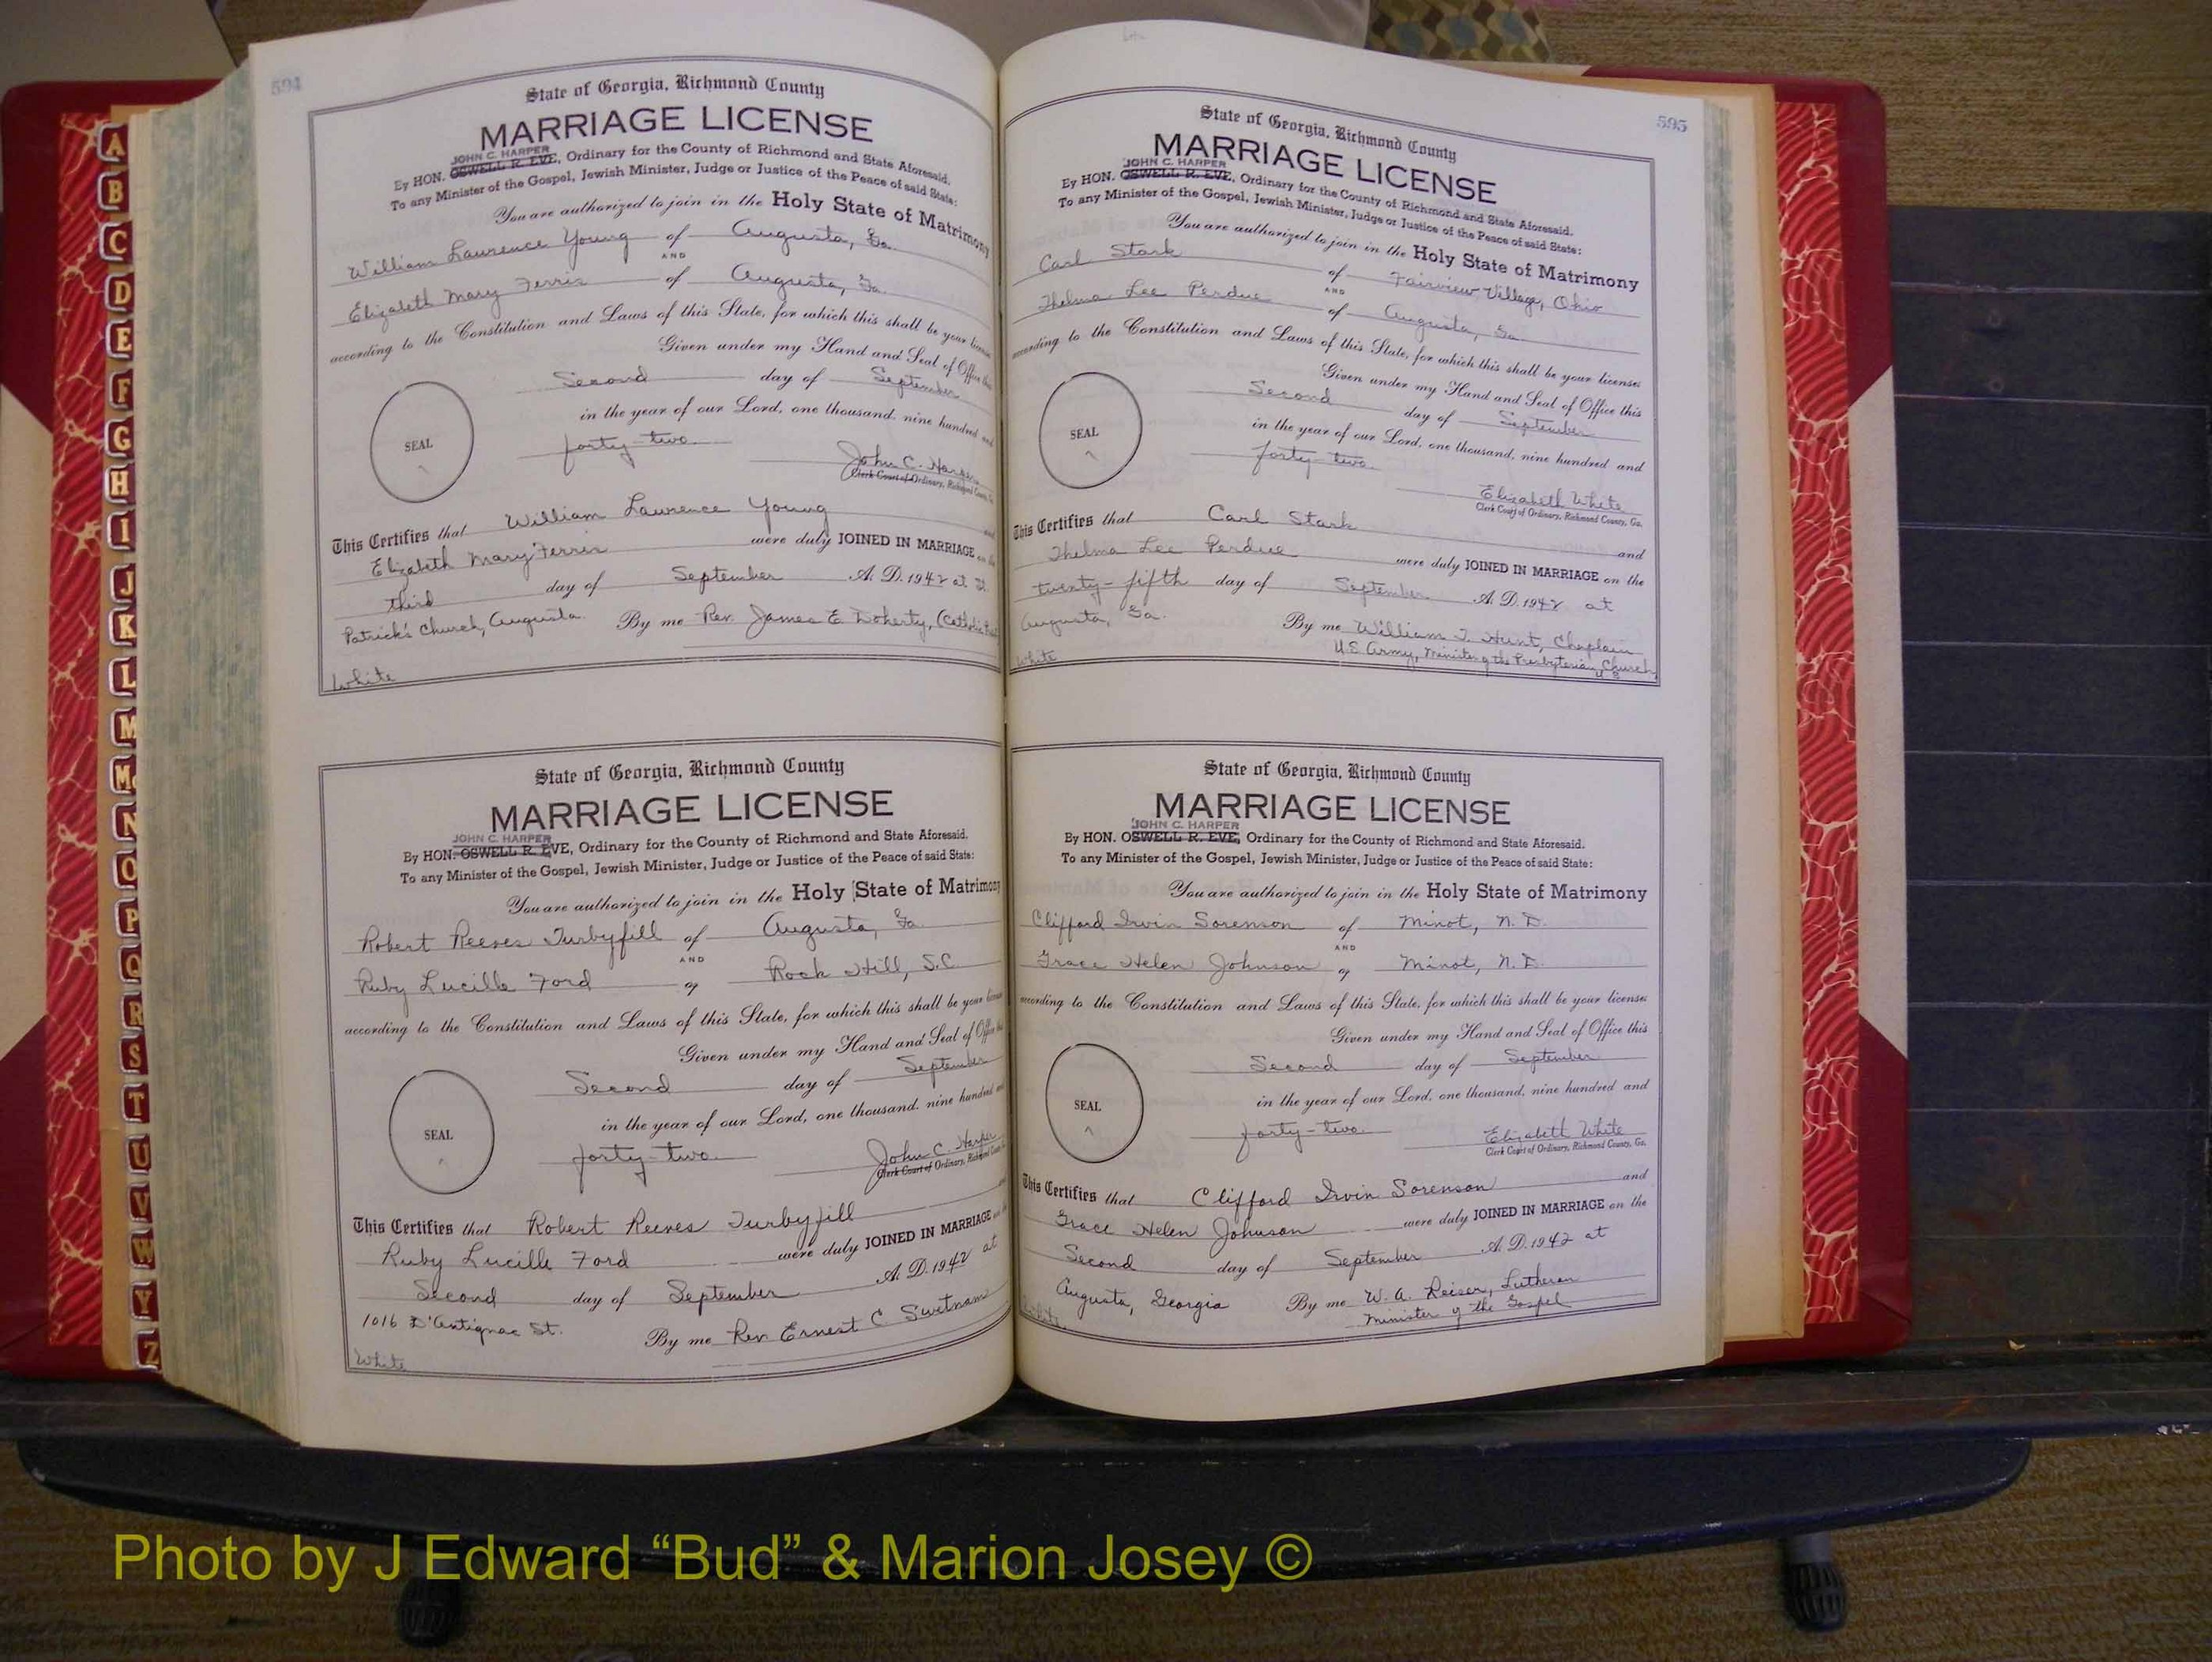 594
State of Georgia, Richmond County
MARRIAGE LICENSE
JOHN C. HARPER
By HON. OSWELL R. EVE, Ordinary for the County of Richmond and State Aforesaid.
To any Minister of the Gospel, Jewish Minister, Judge or Justice of the Peace of said State:
You are authorized to join in the Holy State of Matrimony
William Laurence Young of Augusta, Ga.
AND
Elizabeth Mary Ferris of Augusta, Ga.
according to the Constitution and Laws of this State, for which this shall be your license
Given under my Hand and Seal of Office this
Second day of September
in the year of our Lord, one thousand, nine hundred and
SEAL
forty-two.
John C. Harper
Clerk Court of Ordinary, Richmond County, Ga.
This Certifies that William Laurence Young and
Elizabeth Mary Ferris were duly JOINED IN MARRIAGE on the
third day of September A. D. 1942 at St.
Patrick's Church, Augusta. By me Rev. James E. Doherty, (Catholic
White
State of Georgia, Richmond County
MARRIAGE LICENSE
JOHN C. HARPER
By HON. OSWELL R. EVE, Ordinary for the County of Richmond and State Aforesaid.
To any Minister of the Gospel, Jewish Minister, Judge or Justice of the Peace of said State:
You are authorized to join in the Holy State of Matrimony
Robert Reeves Turbyfill of Augusta, Ga.
AND
Ruby Lucille Ford of Rock Hill, S.C.
according to the Constitution and Laws of this State, for which this shall be your license
Given under my Hand and Seal of Office this
Second day of September
in the year of our Lord, one thousand, nine hundred and
SEAL
forty-two.
John C. Harper
Clerk Court of Ordinary, Richmond County
This Certifies that Robert Reeves Turbyfill and
Ruby Lucille Ford were duly JOINED IN MARRIAGE on the
Second day of September A. D. 1942 at
1016 D'Antignac St. By me Rev. Ernest C. Swetnam
White
595
State of Georgia, Richmond County
MARRIAGE LICENSE
JOHN C. HARPER
By HON. OSWELL R. EVE, Ordinary for the County of Richmond and State Aforesaid.
To any Minister of the Gospel, Jewish Minister, Judge or Justice of the Peace of said State:
You are authorized to join in the Holy State of Matrimony
Carl Stark of Fairview Village, Ohio
AND
Thelma Lee Perdue of Augusta, Ga.
according to the Constitution and Laws of this State, for which this shall be your license
Given under my Hand and Seal of Office this
Second day of September
in the year of our Lord, one thousand, nine hundred and
SEAL
forty-two.
Elizabeth White
Clerk Court of Ordinary, Richmond County, Ga.
This Certifies that Carl Stark and
Thelma Lee Perdue were duly JOINED IN MARRIAGE on the
twenty-fifth day of September A. D. 1942 at
Augusta, Ga. By me William J. Hunt, Chaplain
U.S. Army, Minister of the Presbyterian Church, U.S.
White
State of Georgia, Richmond County
MARRIAGE LICENSE
JOHN C. HARPER
By HON. OSWELL R. EVE, Ordinary for the County of Richmond and State Aforesaid.
To any Minister of the Gospel, Jewish Minister, Judge or Justice of the Peace of said State:
You are authorized to join in the Holy State of Matrimony
Clifford Irvin Sorenson of Minot, N. D.
AND
Grace Helen Johnson of Minot, N. D.
according to the Constitution and Laws of this State, for which this shall be your license
Given under my Hand and Seal of Office this
Second day of September
in the year of our Lord, one thousand, nine hundred and
SEAL
forty-two.
Elizabeth White
Clerk Court of Ordinary, Richmond County, Ga.
This Certifies that Clifford Irvin Sorenson and
Grace Helen Johnson were duly JOINED IN MARRIAGE on the
Second day of September A. D. 1942 at
Augusta, Georgia By me W. A. Reiser, Lutheran
Minister of the Gospel
White
A
B
C
D
E
F
G
H
I
J
K
L
M
Mc
N
O
P
Q
R
S
T
U
V
W
Y
Z
Photo by J Edward “Bud” & Marion Josey ©